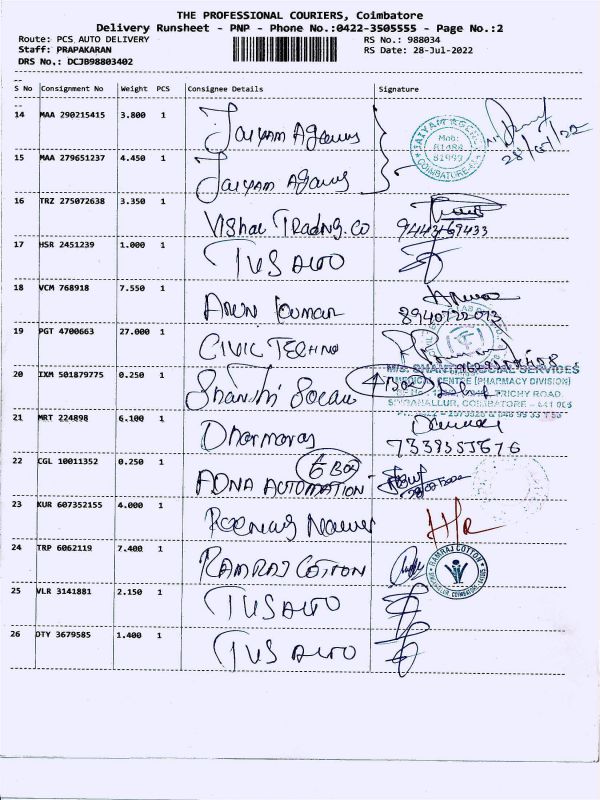 THE PROFESSIONAL COURIERS, Coimbatore
Delivery Runsheet - PNP - Phone No.:0422-3505555 - Page No.:2
Route: PCS AUTO DELIVERY RS No.: 988034
Staff: PRAPAKARAN RS Date: 28-Jul-2022
DRS No.: DCJB98803402
S No Consignment No Weight PCS Consignee Details Signature
14 MAA 290215415 3.800 1 Jaiyam Agency
28/07/22
JAIYAM AGENCY
Mob:
COIMBATORE
15 MAA 279651237 4.450 1 Jaiyam Agency
16 TRZ 275072638 3.350 1 Vishal Trading.co
17 HSR 2451239 1.000 1 TVS AUTO
18 VCM 768918 7.550 1 Arun Kumar
8940722073
19 PGT 4700663 27.000 1 CIVIL TECHNO
20 IXM 501879775 0.250 1 Shanthi Social
M/S. SHANTHI SOCIAL SERVICES
MEDICAL CENTRE (PHARMACY DIVISION)
TRICHY ROAD,
SINGANALLUR, COIMBATORE - 641 005
21 MRT 224898 6.100 1 Dharmaraj
22 CGL 10011352 0.250 1 6 Box
ADNA AUTOMATION
23 KUR 607352155 4.000 1
24 TRP 6062119 7.400 1 RAMRAJ COTTON
RAMRAJ COTTON
25 VLR 3141881 2.150 1 TVS AUTO
26 OTY 3679585 1.400 1 TVS AUTO